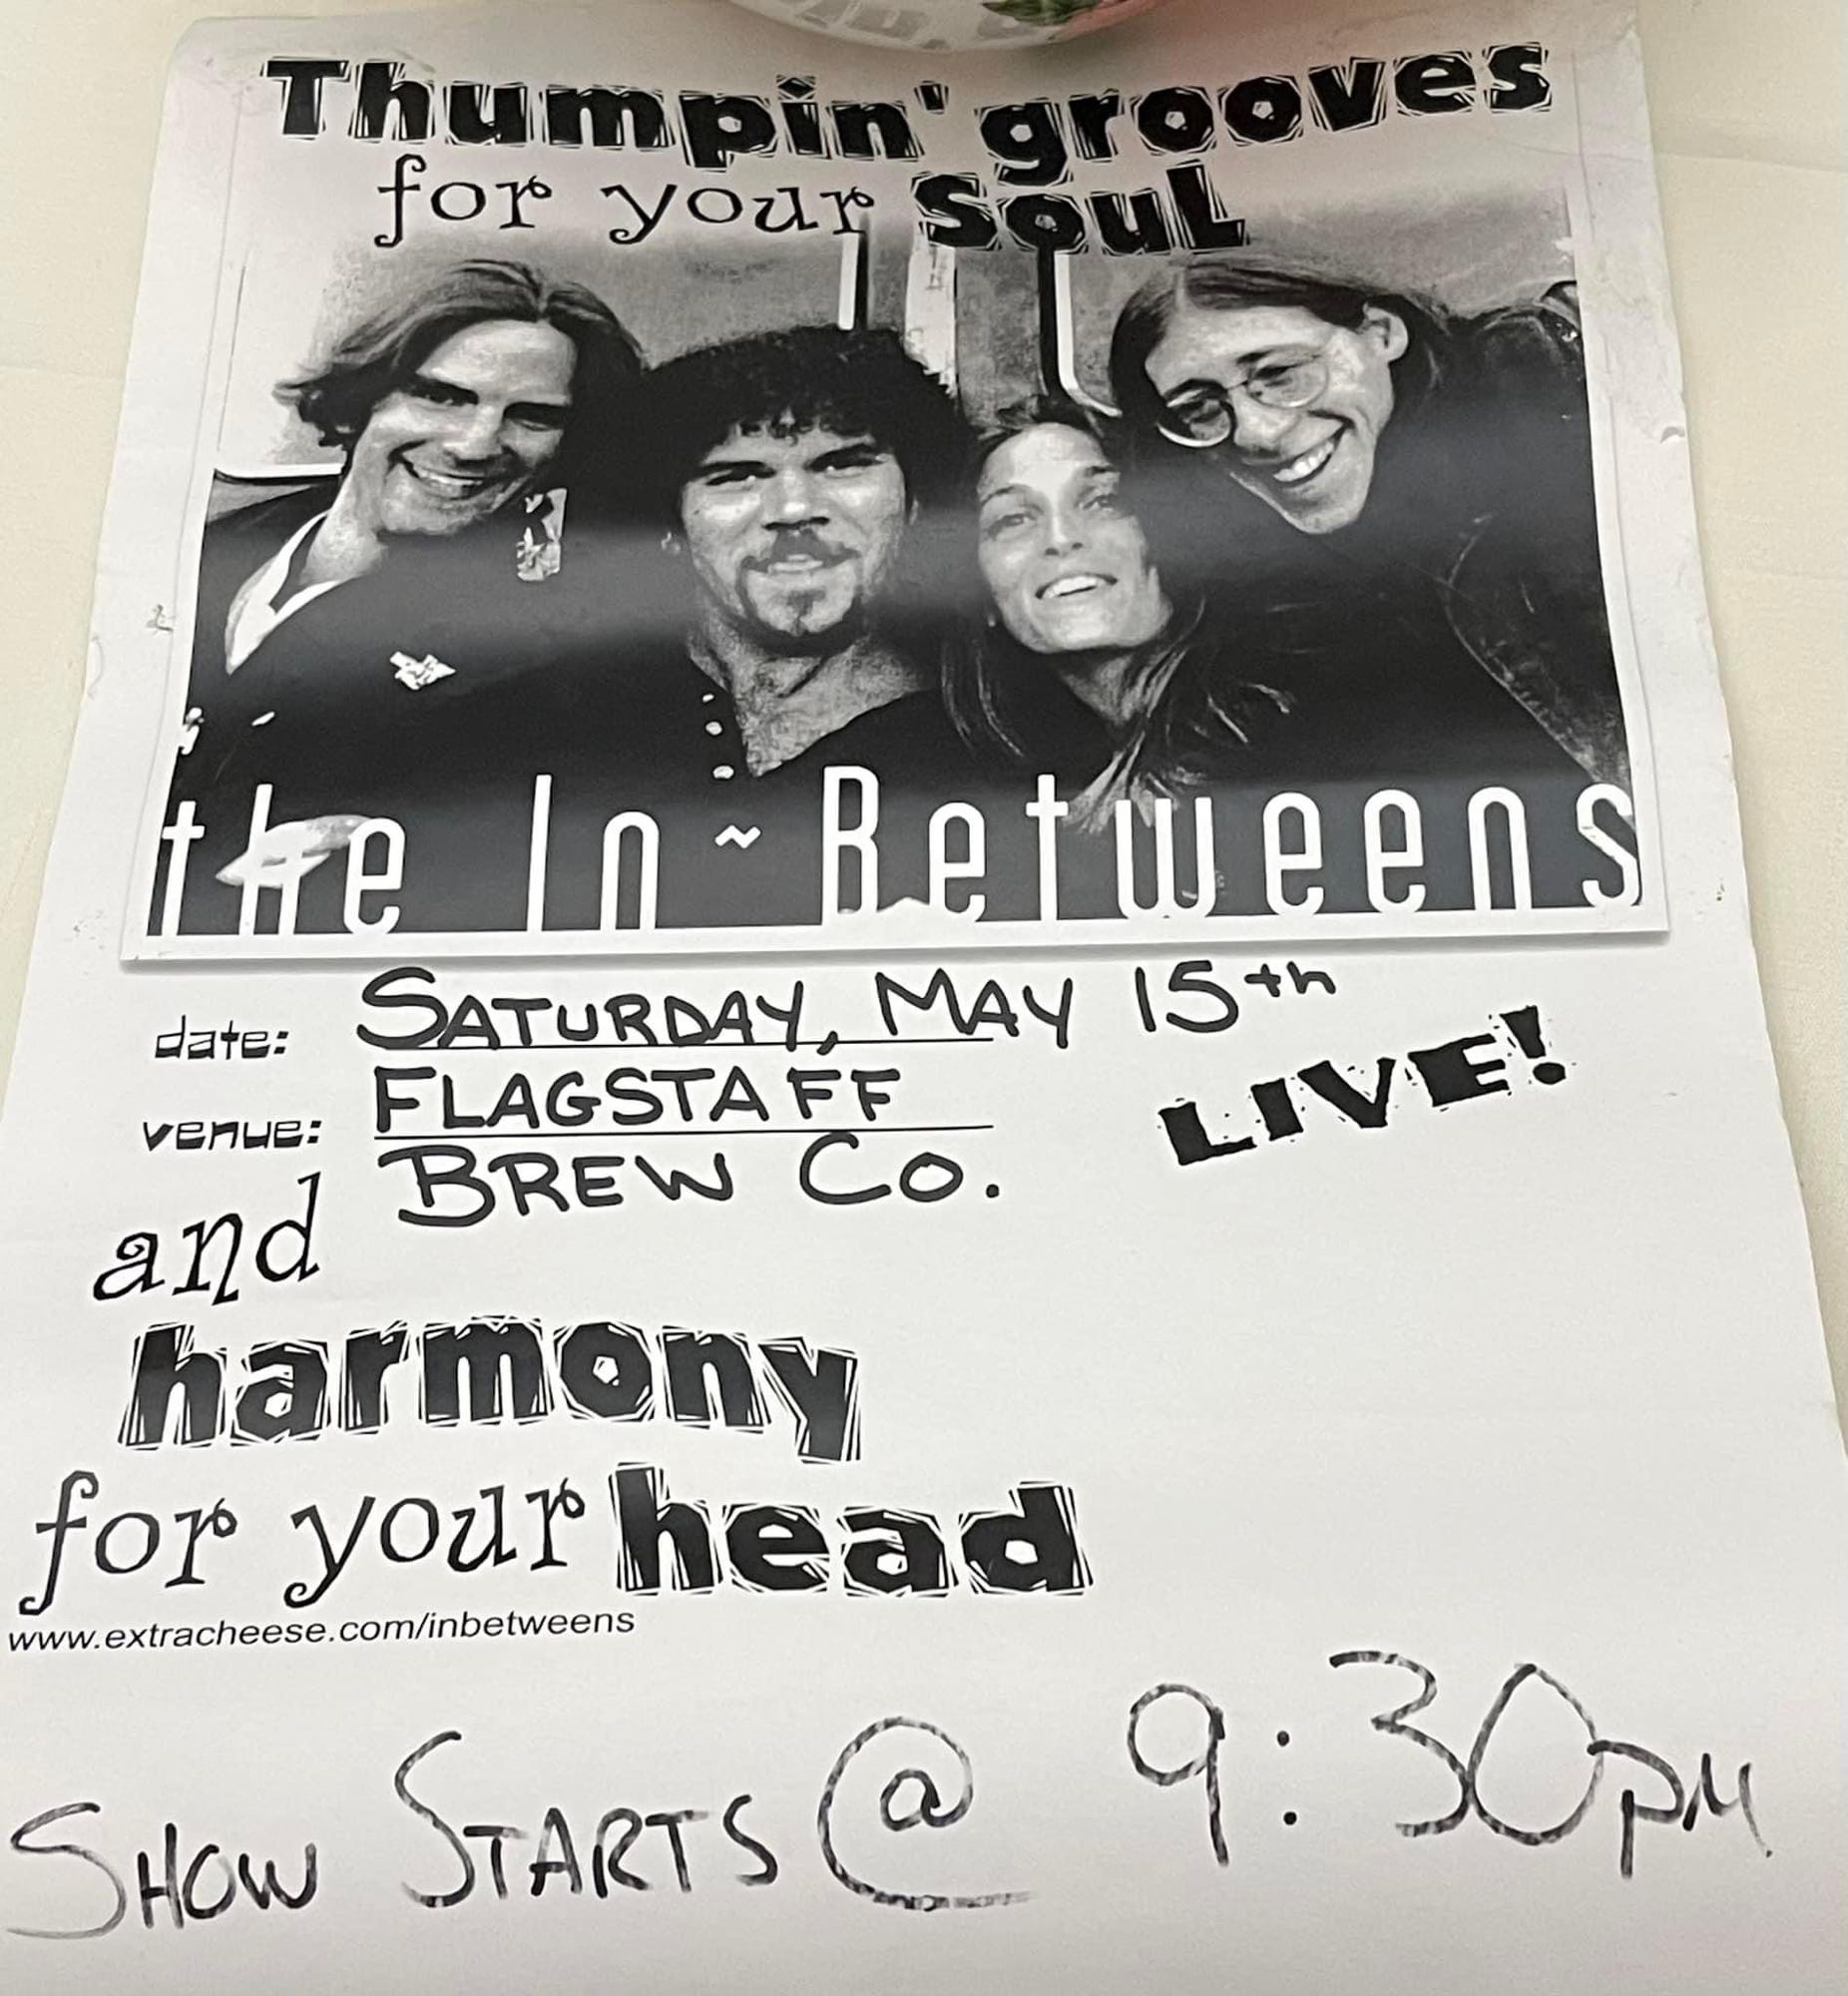 Thumpin' grooves
for your SouL
the In~Betweens
date: SATURDAY, MAY 15th
venue: FLAGSTAFF
BREW CO.
LIVE!
and
harmony
for your head
www.extracheese.com/inbetweens
SHOW STARTS @ 9:30PM